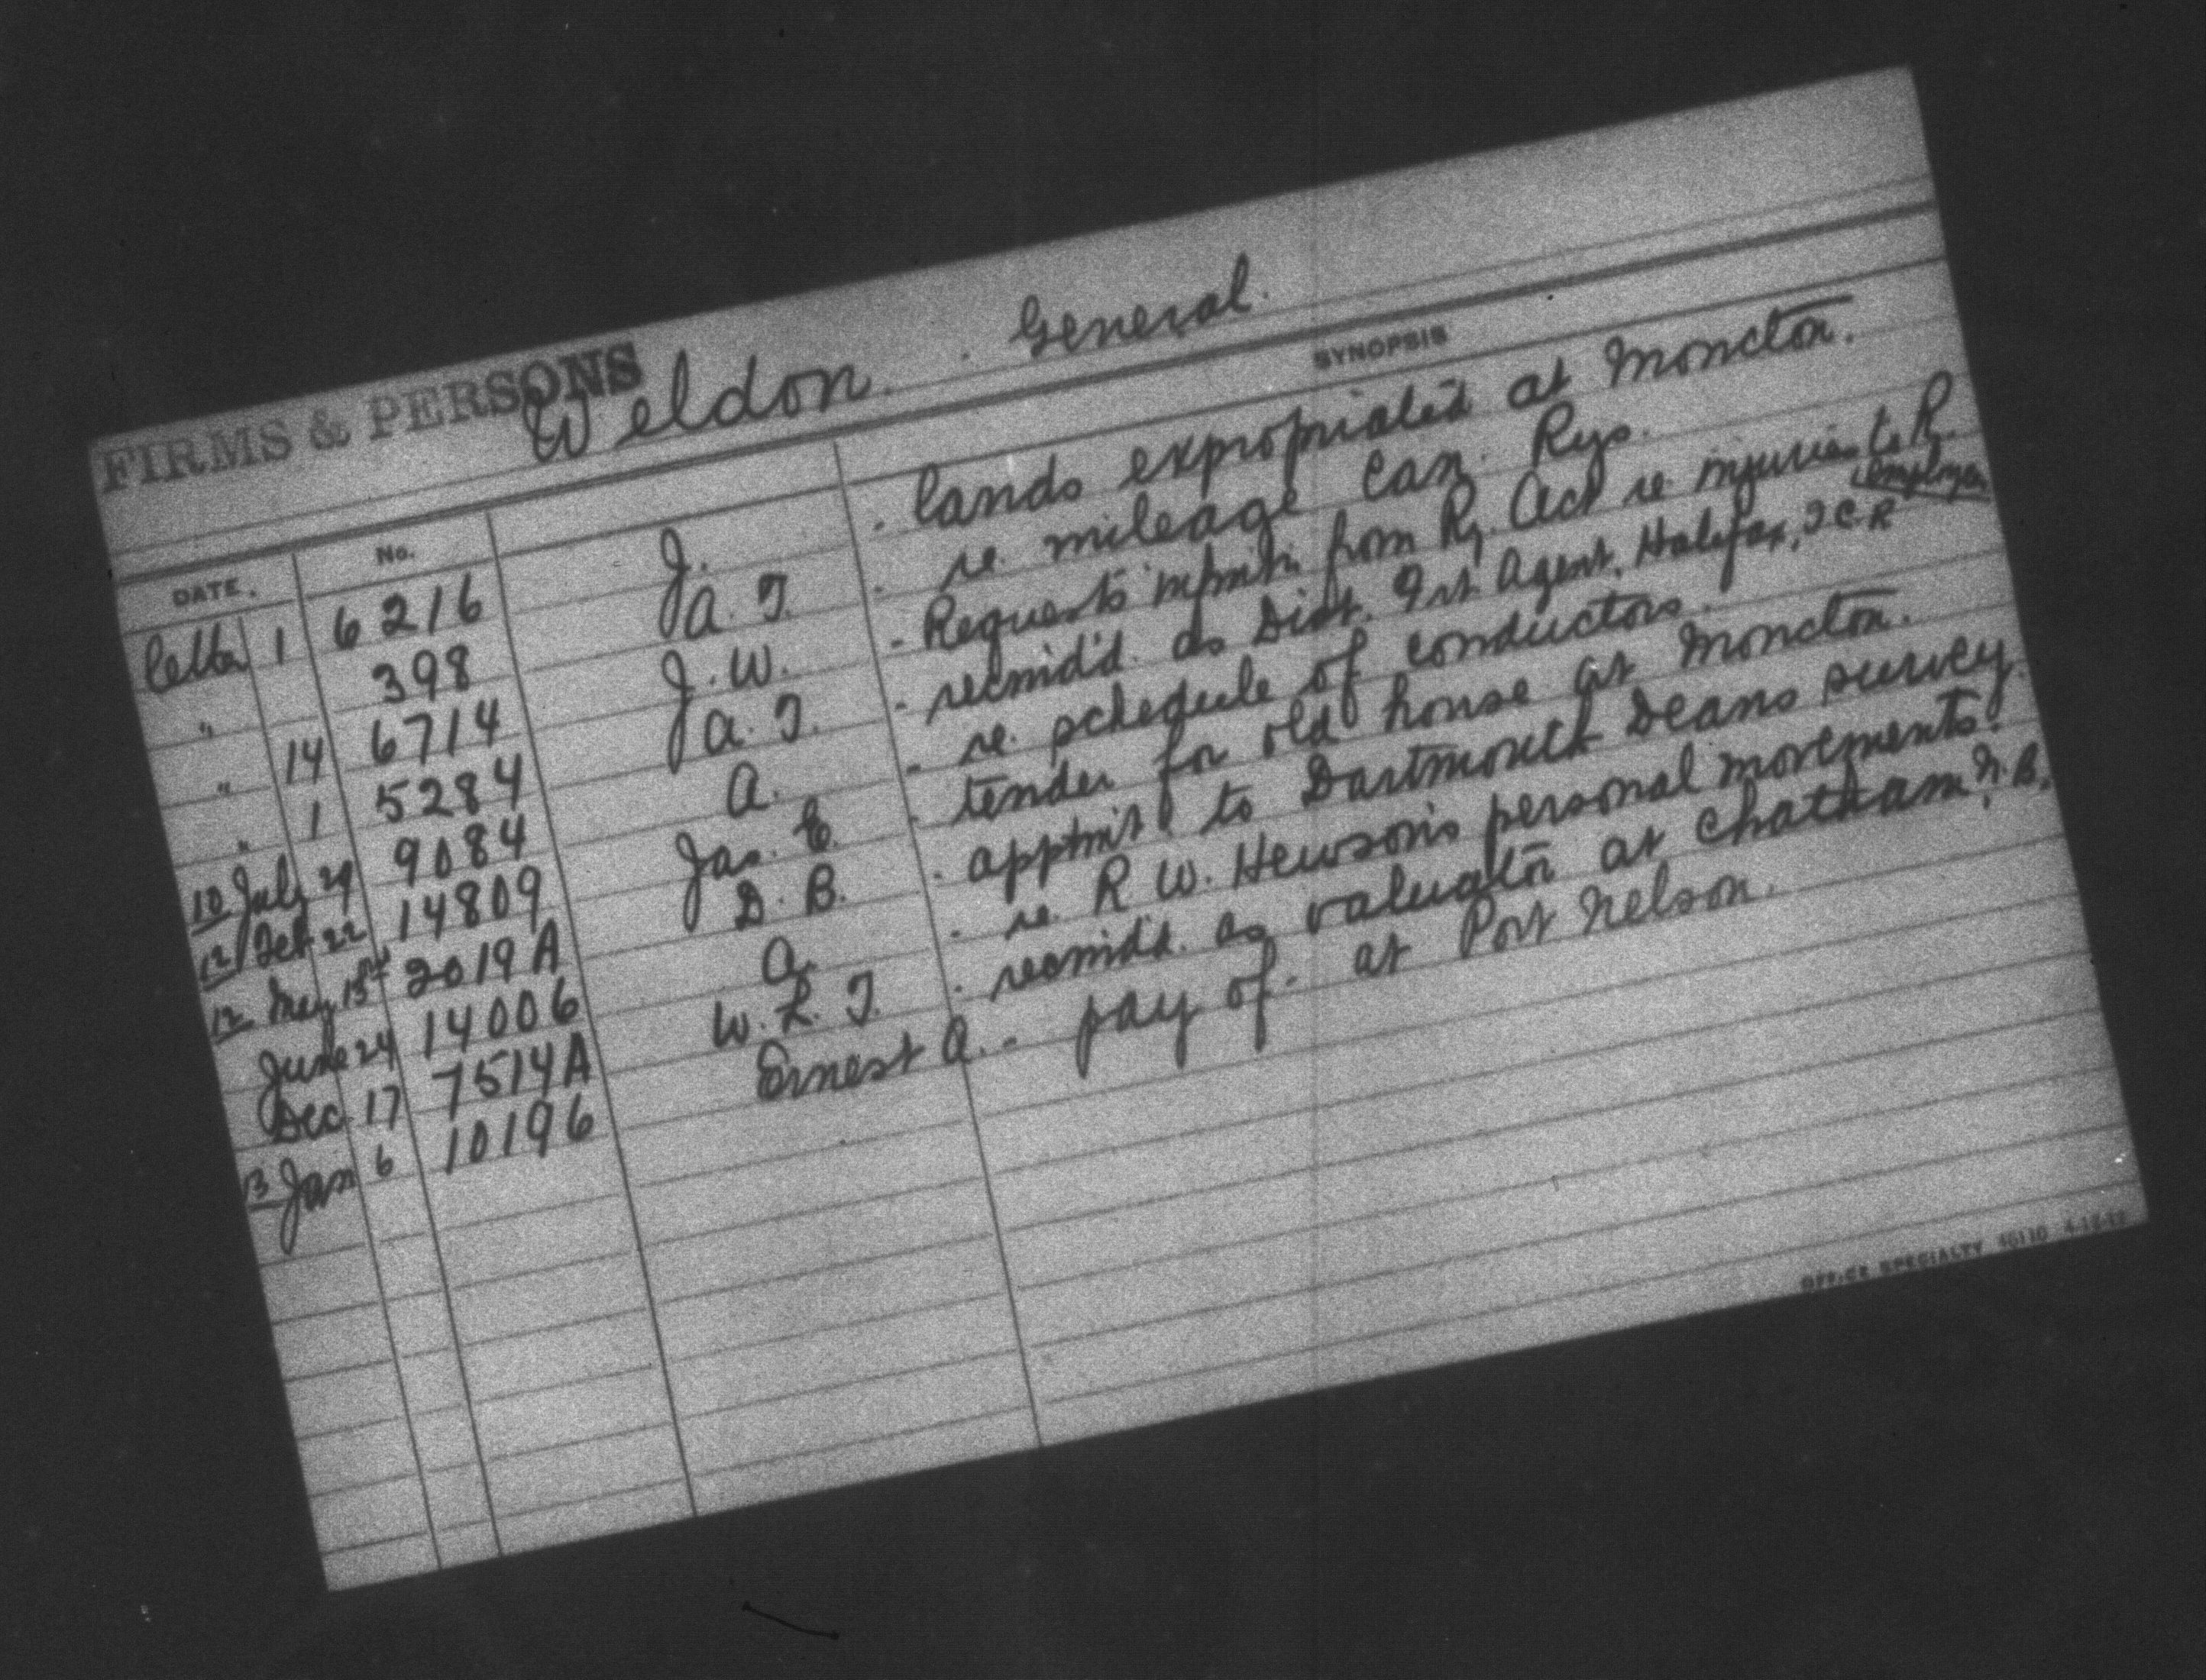 FIRMS & PERSONS
Weldon. . General.
DATE. No. SYNOPSIS
1 6216 J. . lands expropriated at Moncton.
" 398 A. T. . re. mileage Can. Rys.
" 14 6714 J. W. - Requests from Ry. Act re injuries to Ry. employees
" 1 5284 A. T. - recmd'd. as Dist. Frt. Agent, Halifax, I.C.R
10 July 29 9084 A. - re. schedule of conductors.
12 Feb 22 14809 Jas. E. . tender for old house at Moncton.
12 May 15th 2019A D. B. . apptmt to Dartmouth Deans survey.
June 24 14006 A. . re. R W. Hewson's personal movements.
Dec. 17 7514A W. L. T. . recmd'd. as valuator at Chatham, N. B.
13 Jan 6 10196 Ernest A. - pay of. at Port Nelson.
OFFICE SPECIALTY 46110